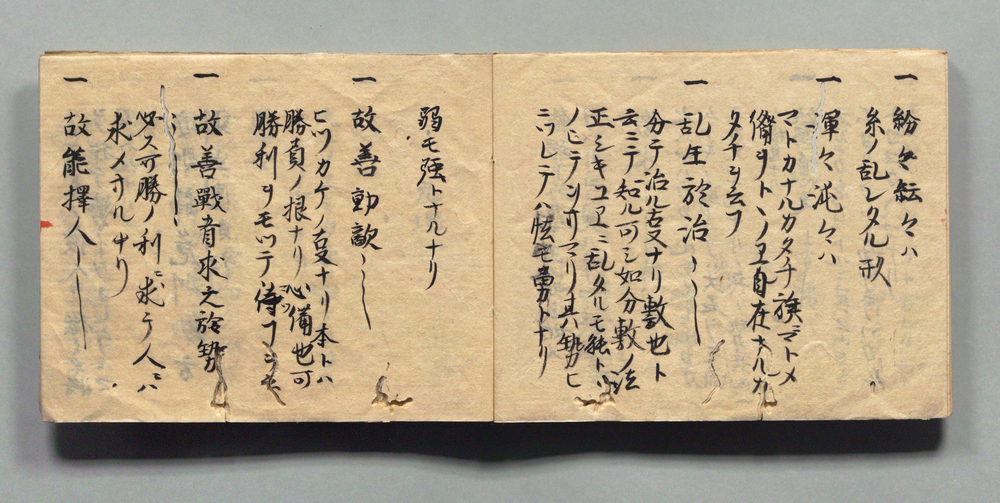 一 紛々紜々ハ
糸ノ乱レタル形
一 渾々沌々ハ
マトカナルカタチ旗ヲマトメ
備ヲトヽノヱ自在ナルカ
タチヲ云フ
一 乱生於治
分テ治ル古又ナリ敷也ト
云ニテ知ル可シ如分敷ノ法
正シキユヱニ乱タルモ
ノヒテン其勢ヒ
ニツレテハ怯モ勇トナリ
弱モ強トナルナリ
一 故善動敵
ヒツカケノ古又ナリ本トハ
勝負ノ根ナリ心備也可
勝利ヲモツテ待フ
一 故善戰者求之於勢
必ス可勝ノ利ニ求テ人ニハ
求メサル也
一 故能擇人